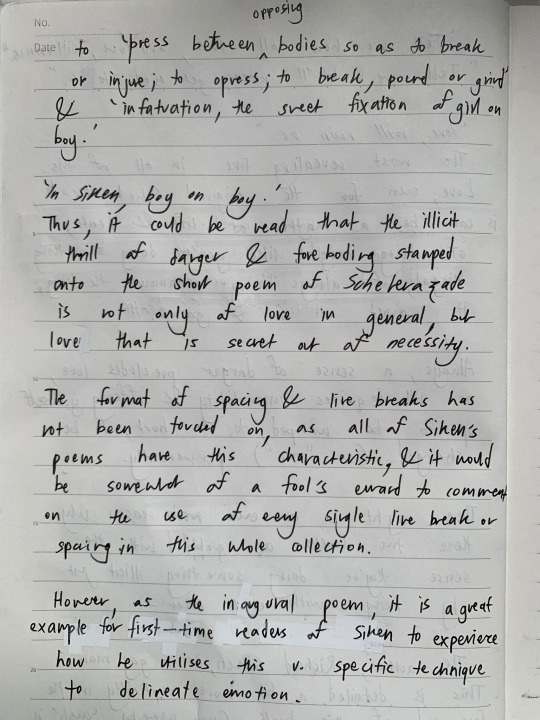 No.
Date
opposing
to 'press between ^ bodies so as to break
or injue; to opress; to break, pound or grind'
& 'infatuation, the sweet fixation of girl on
boy.'
'In Siken, boy on boy.'
Thus, it could be read that the illicit
thrill of danger & foreboding stamped
onto the short poem of Scheherazade
is not only of love in general, but
love that is secret out of necessity.
The format of spacing & line breaks has
not been touched on, as all of Siken's
poems have this characteristic, & it would
be somewhat of a fool's errand to comment
on the use of every single line break or
spacing in this whole collection.
However, as the inaugural poem, it is a great
example for first-time readers of Siken to experience
how he utilises this v. specific technique
to delineate emotion.